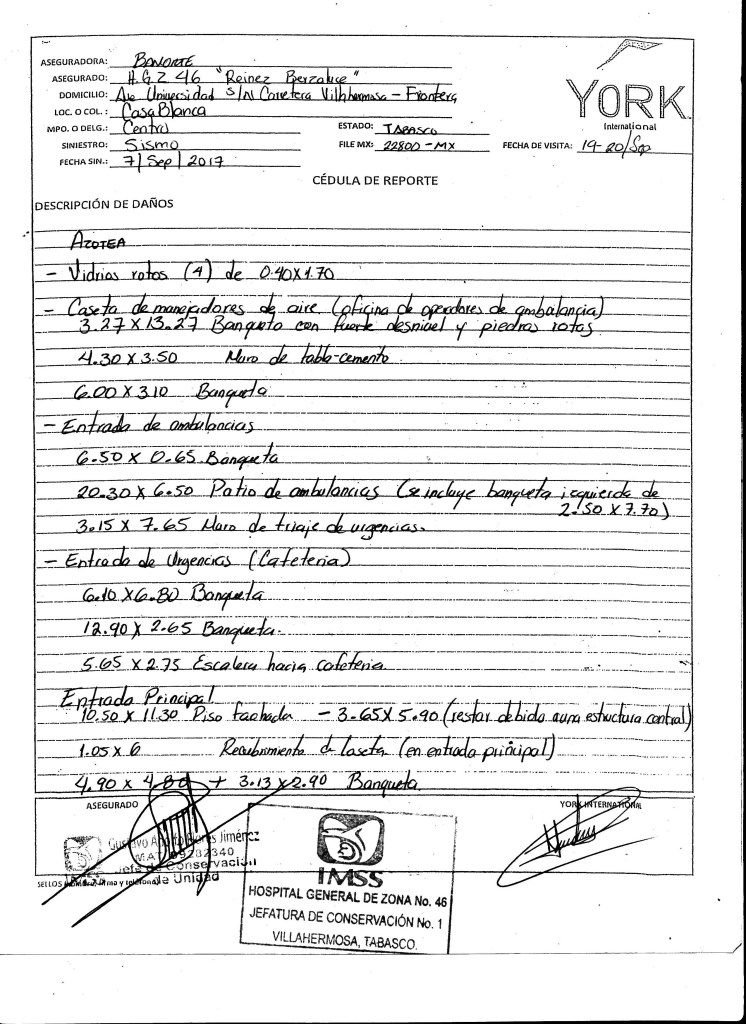 ASEGURADORA: BANORTE
ASEGURADO: H.G.Z 46 "Reinez Berzaluce"
DOMICILIO: Ave Universidad S/N Carretera Villahermosa - Frontera
LOC. O COL.: Casa Blanca
MPO. O DELG.: Centro
ESTADO: TABASCO
SINIESTRO: Sismo
FILE MX: 22800-MX
FECHA DE VISITA: 19-20/Sep
FECHA SIN.: 7/Sep/2017
YORK
International
CÉDULA DE REPORTE
DESCRIPCIÓN DE DAÑOS
AZOTEA
- Vidrios rotos (4) de 0.40X1.70
- Caseta de manejadores de aire (oficina de operadores de ambulancia)
3.27 X 13.27 Banqueta con fuerte desnivel y piedras rotas
4.30 X 3.50 Muro de tabla-cemento
6.00 X 3.10 Banqueta
- Entrada de ambulancias
6.50 X 0.65 Banqueta
20.30 X 6.50 Patio de ambulancias (se incluye banqueta izquierda de
2.50 X 7.70)
3.15 X 7.65 Muro de triaje de urgencias.
- Entrada de Urgencias (Cafeteria)
6.10 X 6.80 Banqueta
12.90 X 2.65 Banqueta.
5.65 X 2.75 Escalera hacia cafeteria
Entrada Principal
10.50 X 11.30 Piso fachada - 3.65 X 5.90 (restar debido a una estructura central)
1.05 X 6 Recubrimiento de loseta (en entrada principal)
4.90 X 4.80 + 3.13 X 2.90 Banqueta
ASEGURADO
YORK INTERNATIONAL
Gustavo Flores Jiménez
MAT.
Jefe de Conservación
de Unidad
SELLOS firma y
IMSS
HOSPITAL GENERAL DE ZONA No. 46
JEFATURA DE CONSERVACIÓN No. 1
VILLAHERMOSA, TABASCO.